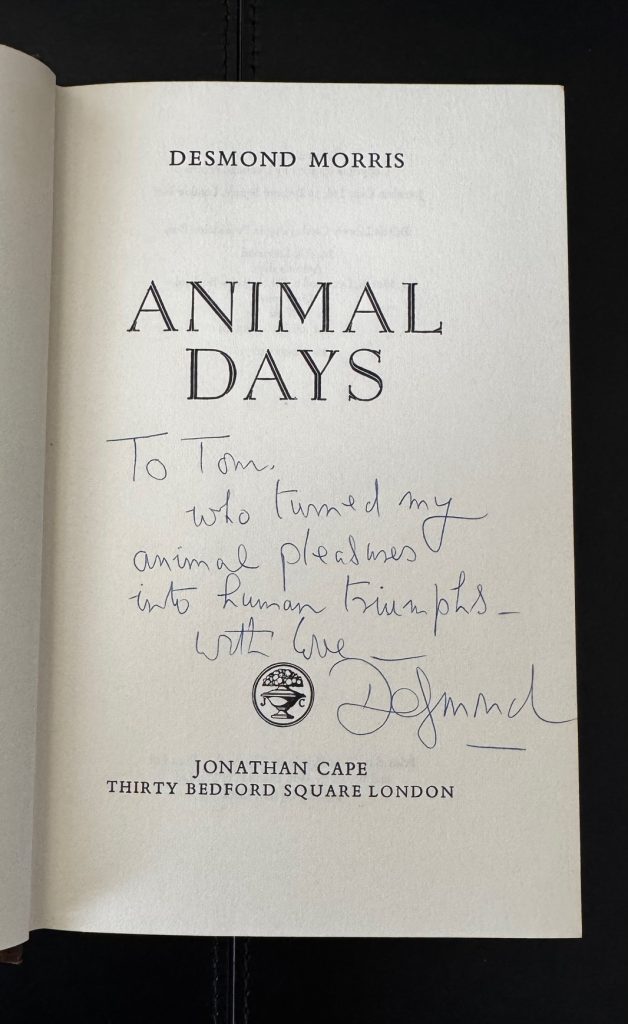 DESMOND MORRIS
ANIMAL
DAYS
To Tom.
who turned my
animal pleasures
into human triumphs –
with love –
Desmond
J C
JONATHAN CAPE
THIRTY BEDFORD SQUARE LONDON